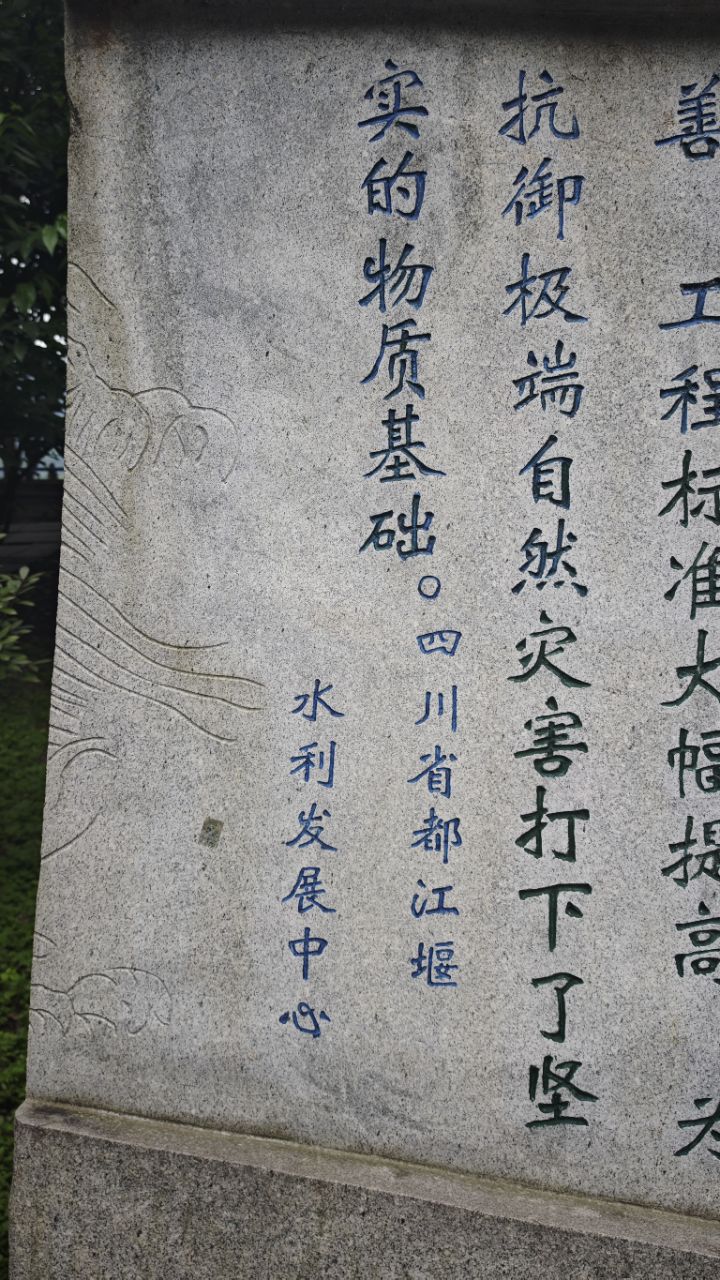 善 工程标准大幅提高 为
抗御极端自然灾害打下了坚
实的物质基础。四川省都江堰
水利发展中心